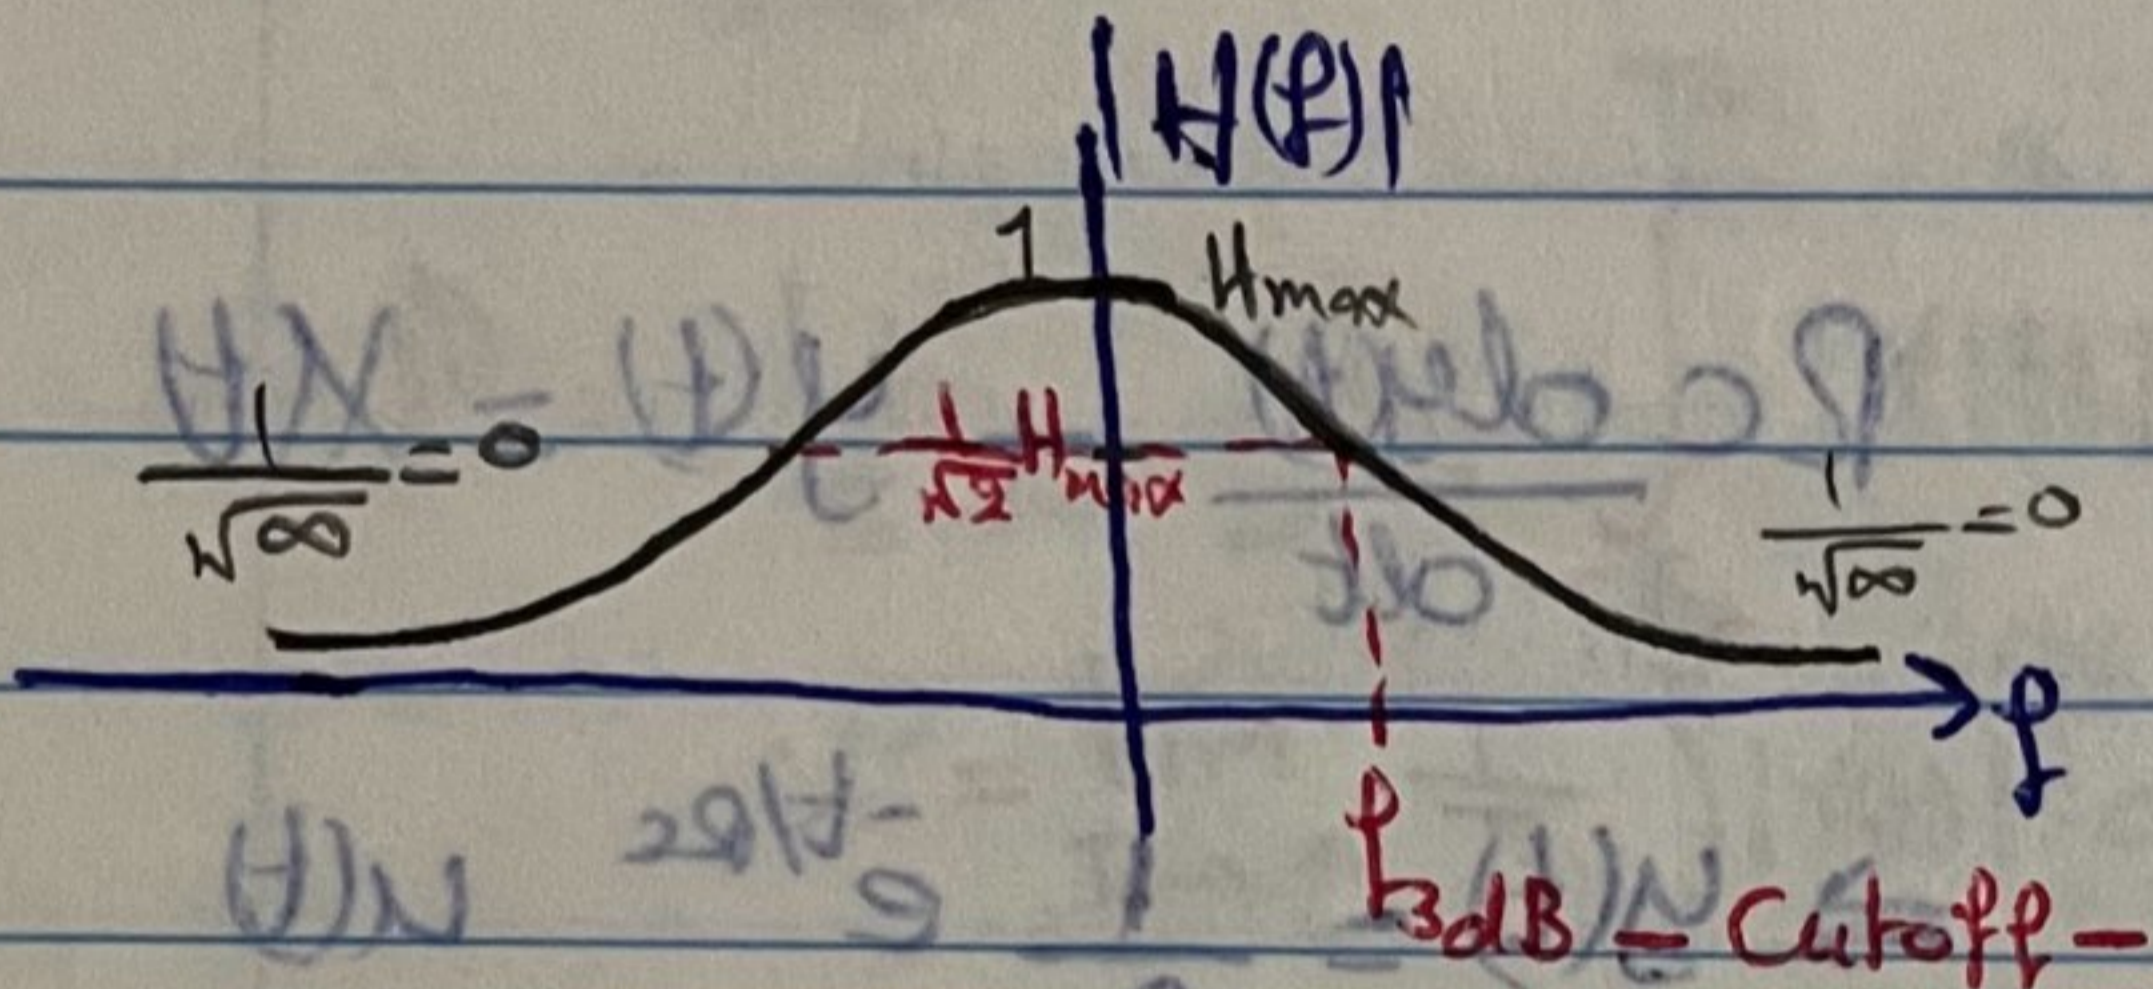 |H(f)|
1 Hmax
1/√2 Hmax
1/√∞ = 0
1/√∞ = 0
f
f3dB - Cutoff -